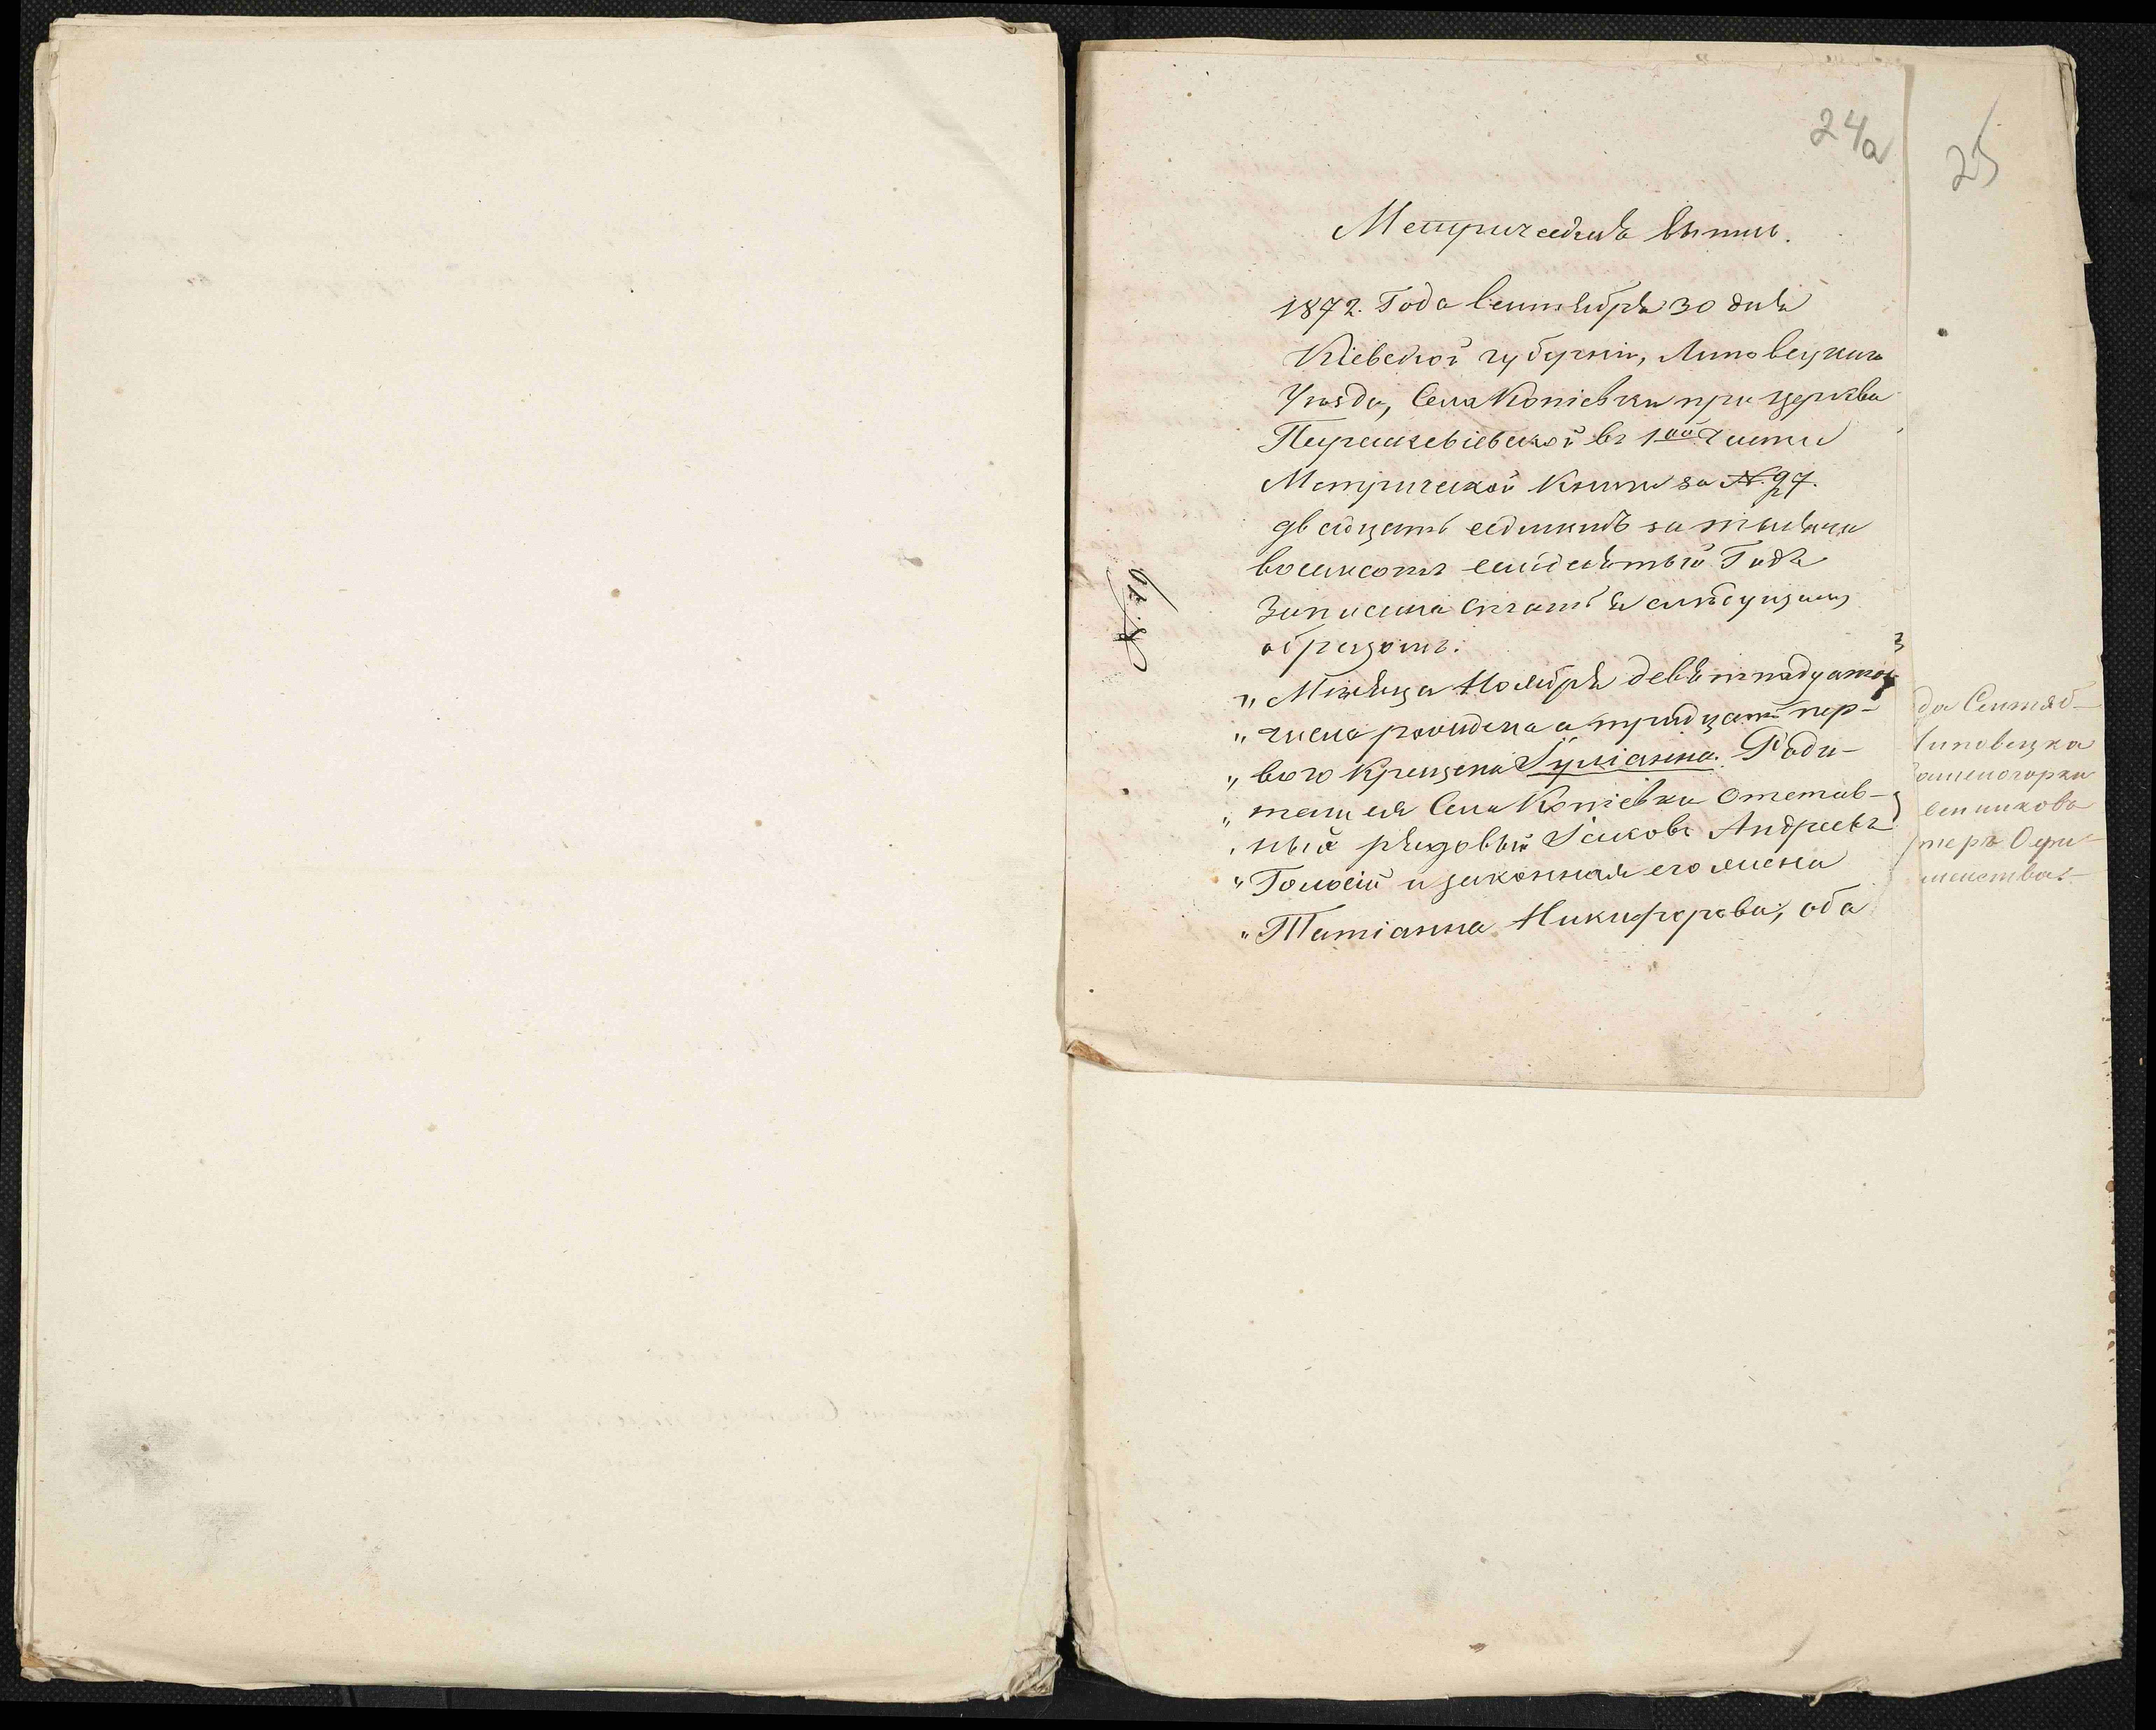 24а
25
Метрическая выпись.
1872. Года Сентября 30 дня
Кіевской губерніи, Липовецкаго
Уѣзда, Села Копіевки при церкви
Параскевіевской въ 1ой Части
Метрической Книги за № 27.
двадцать седьмымъ за тысяча
восемсотъ семдесятый Годъ
Записана статья слѣдующимъ
образомъ:
№ 19
„Мѣсяца Ноября девятнадцатаго
„числа рождена а тридцать пер-
„ваго крещена Іуліанна. Роди-
„тели ея Села Копіевки Отстав-
„ный рядовый Іаковъ Андреевъ
„Голосій и законная его жена
„Татіанна Никифорова, оба
да Сентяб-
Липовецка
венникова
теръ Офи-